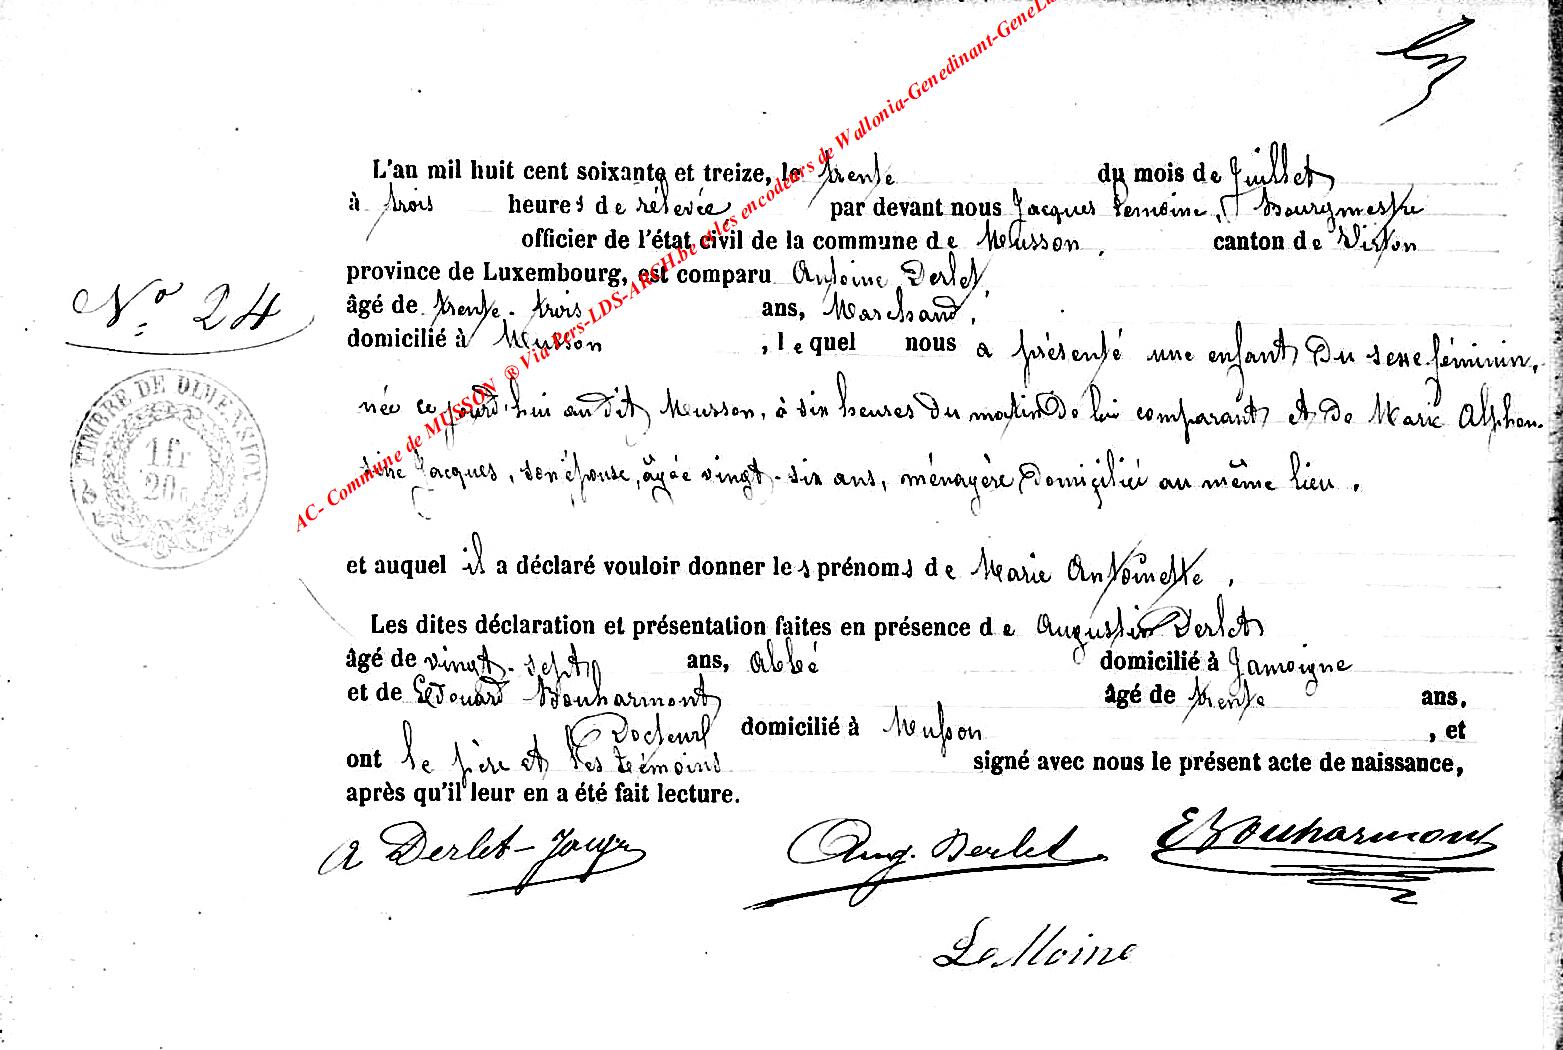 L'an mil huit cent soixante et treize, le trente du mois de Juillet
à trois heures de rélevée, par devant nous Jacques Lemoine, Bourgmestre
officier de l'état civil de la commune de Musson, canton de Virton
province de Luxembourg, est comparu Antoine Derlet,
Nº 24
âgé de trente-trois ans, Marchand,
domicilié à Musson, lequel nous a présenté une enfant du sexe féminin,
née ce jourd'hui au dit Musson, à six heures du matin de lui comparant et de Marie Alphon-
sine Jacques, son épouse, âgée vingt-six ans, ménagère domiciliée au même lieu.
TIMBRE DE DIMENSION
1 fr
20 c
et auquel il a déclaré vouloir donner les prénoms de Marie Antoinette,
Les dites déclaration et présentation faites en présence de Augustin Derlet
âgé de vingt-sept ans, abbé domicilié à Jamoigne
et de Edouard Bouharmont âgé de trente ans,
Docteur domicilié à Musson, et
ont le père et les témoins signé avec nous le présent acte de naissance,
après qu'il leur en a été fait lecture.
A Derlet-Jacqs Aug. Derlet E Bouharmont
LeMoine
AC- Commune de MUSSON ® Via Pers-LDS-ARCH.be et les encodeurs de Wallonia-Genedinant-GeneLu